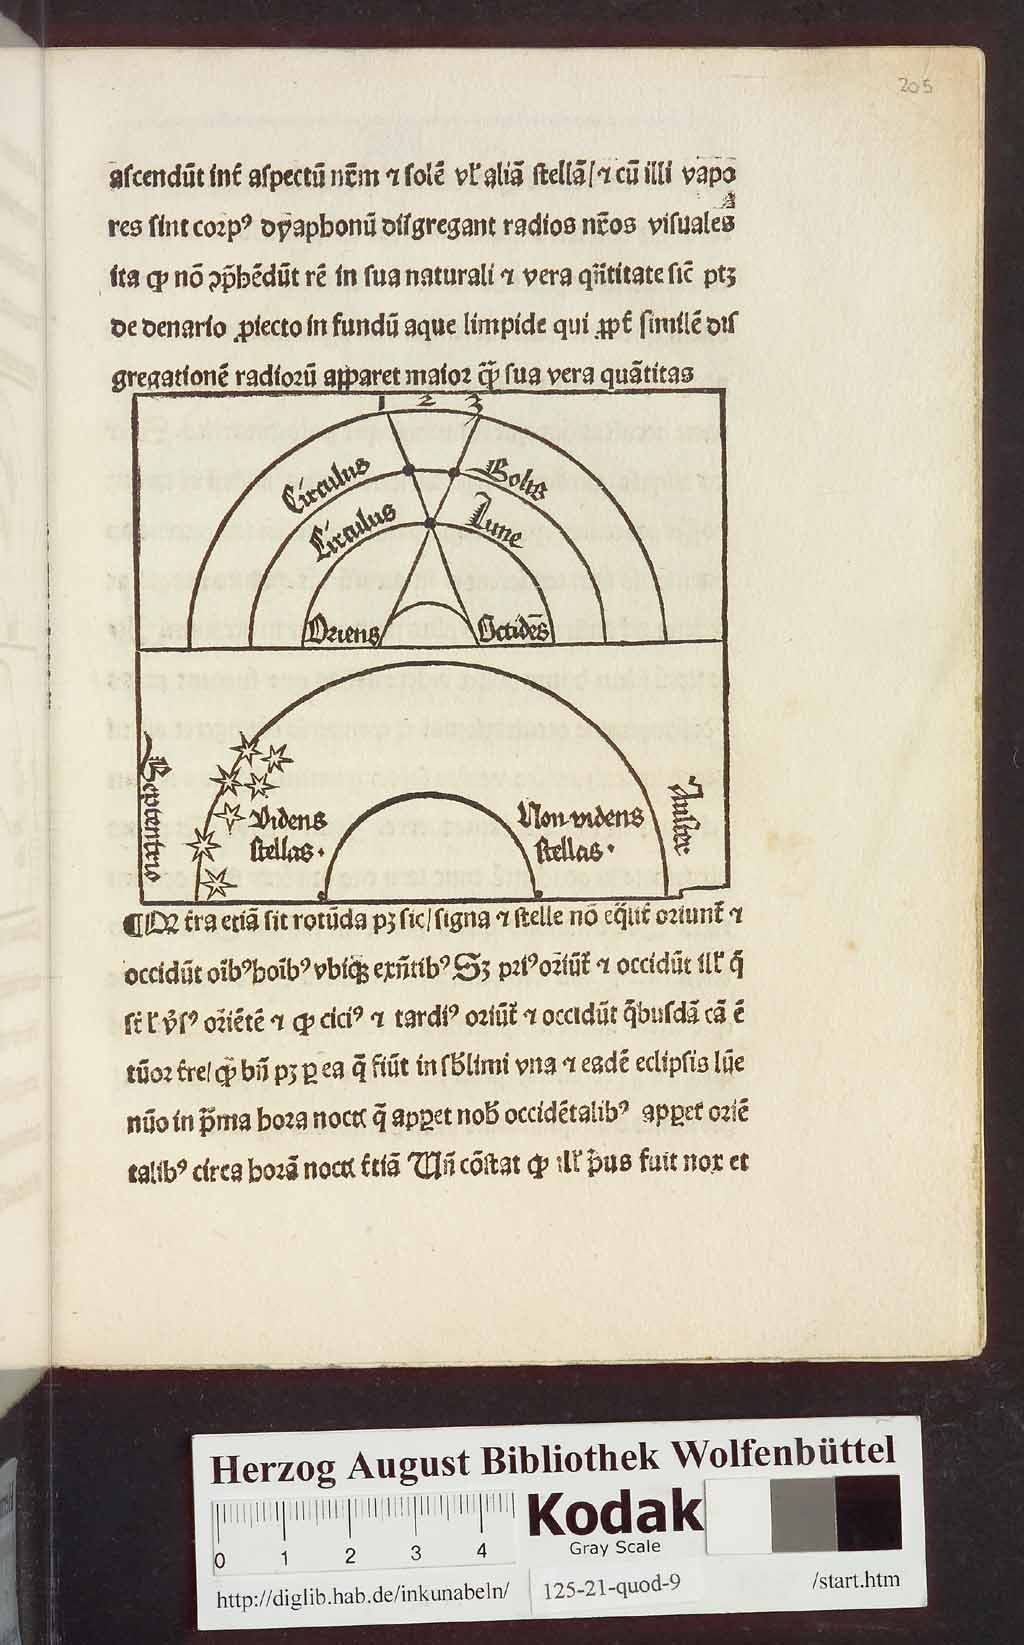 205
aſcendūt int̄ aſpectū nr̄m ⁊ ſolē vl' aliā ſtellā/ ⁊ cū illi vapo
res ſint corpꝰ dyaphonū diſgregant radios nr̄os viſuales
ita ꝙ nō ꝯp̄hēdūt rē in ſua naturali ⁊ vera qn̄titate ſic̄ ptꝫ
de denario ꝓiecto in fundū aque limpide qui ſimilē diſ
gregationē radioꝛū apparet maioꝛ ꝙ̄ ſua vera quātitas
1 2 3
Circulus Solis
Circulus Lune
Oriens Occidēs
Septentrio
Videns
ſtellas·
Non videns
ſtellas·
Auſter
¶ Qꝛ t̄ra etiā ſit rotūda pꝫ ſic/ ſigna ⁊ ſtelle nō oriunt̄ ⁊
occidūt oībꝰ hoībꝰ vbiqꝫ exn̄tibꝰ Sꝫ priꝰ oriūt̄ ⁊ occidūt ill' q̄
oriētē ⁊ ꝙ citiꝰ ⁊ tardiꝰ oriūt̄ ⁊ occidūt q̄buſdā cā ē
tūoꝛ t̄re/ ꝙ bn̄ pꝫ ꝑ ea q̄ fiūt in ſb̄limi vna ⁊ eadē eclipſis lūe
nūo in p̄ma hora noct q̄ apꝑet nob̄ occidētalibꝰ apꝑet oriē
talibꝰ circa horā noct t̄tiā Vn̄ cōſtat ꝙ ill' p̄us fuit nox et
Herzog August Bibliothek Wolfenbüttel
Kodak
Gray Scale
0 1 2 3 4
http://diglib.hab.de/inkunabeln/ 125-21-quod-9 /start.htm